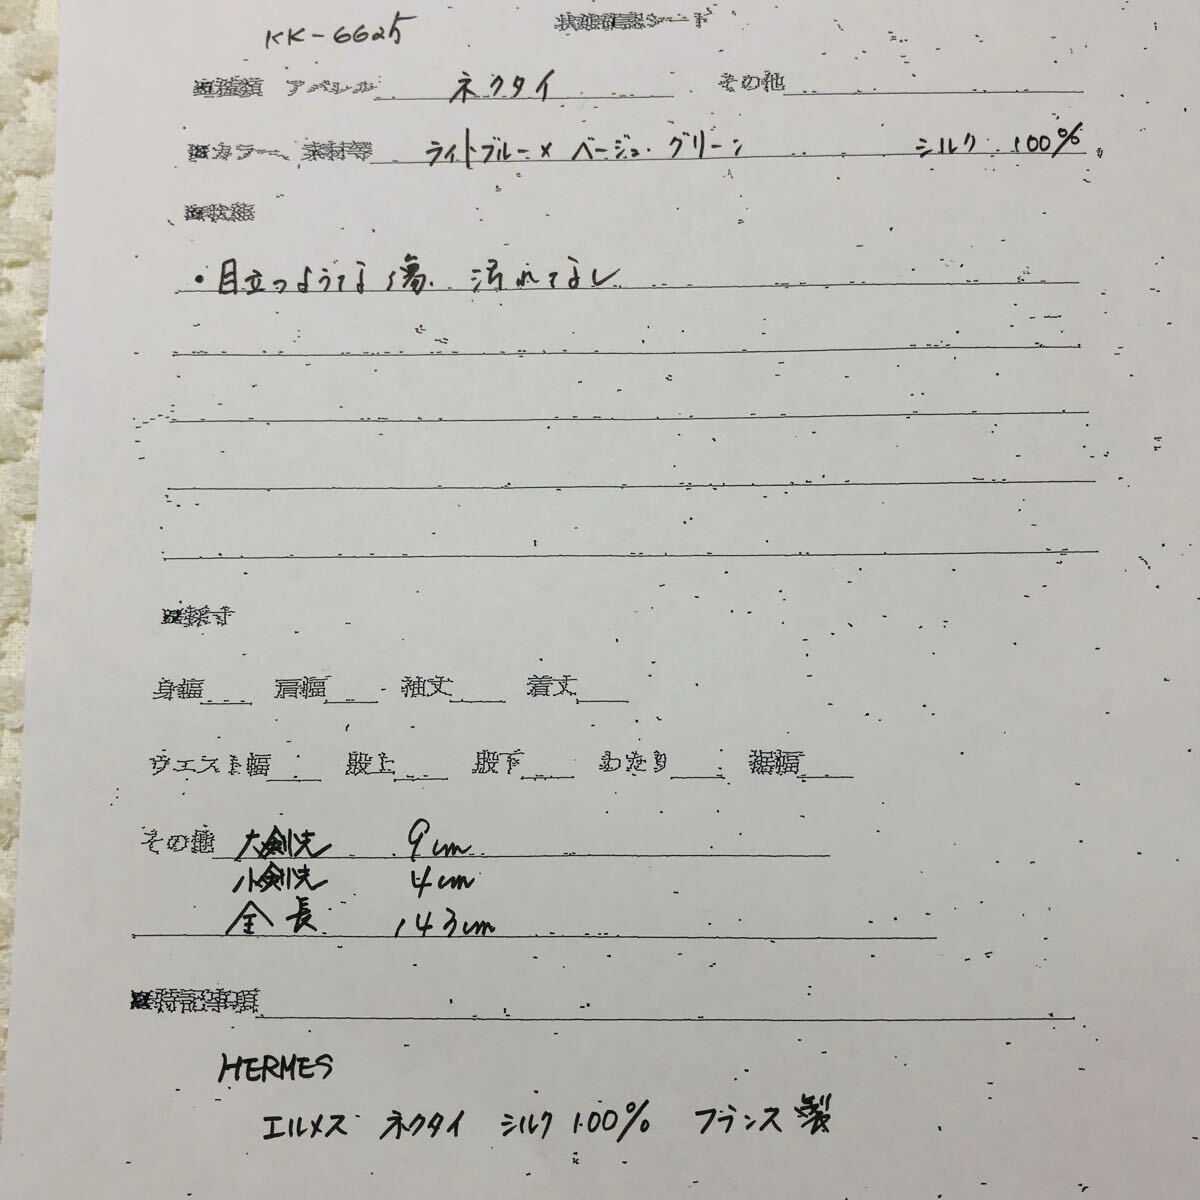 KK-6625
状態確認シート
種類 アパレル ネクタイ その他
カラー、素材等 ライトブルー×ベージュ・グリーン シルク 100%
状態
・目立つような傷、汚れてなし
採寸
身幅 肩幅 袖丈 着丈
ウエスト幅 股上 股下 わたり 裾幅
その他 大剣先 9cm
小剣先 4cm
全長 143cm
特記事項
HERMES
エルメス ネクタイ シルク 100% フランス製